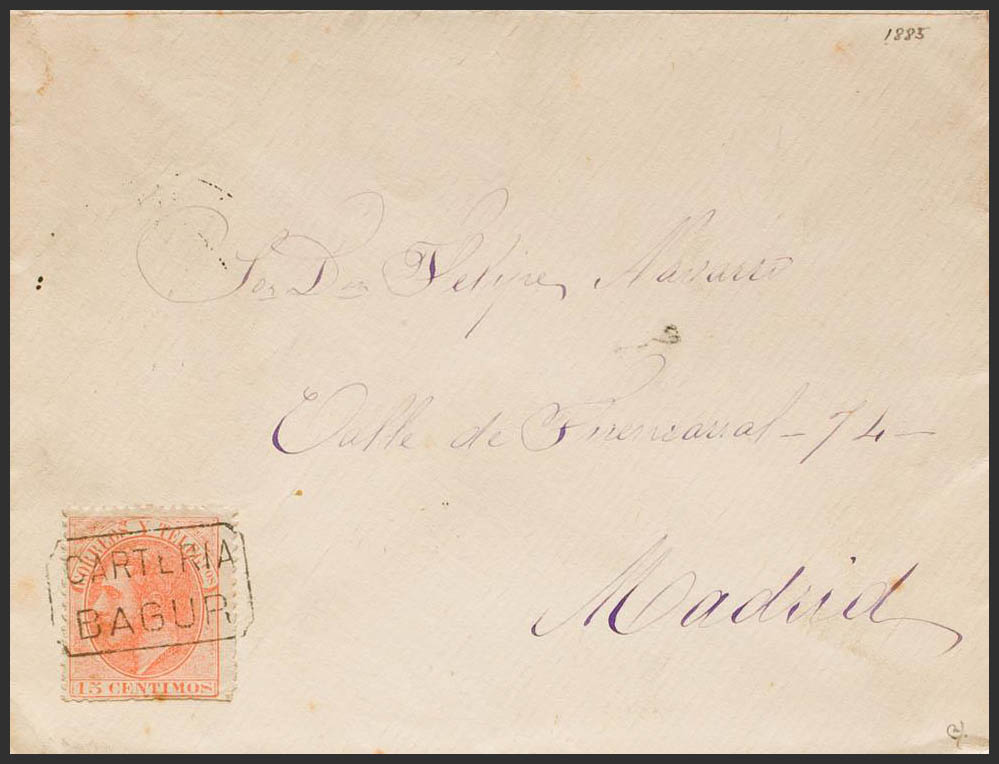 1885
Sor Don Felipe Navarro
Calle de Fuencarral - 74 -
Madrid
CORREOS Y TELEGRAFOS
CARTERIA
BAGUR
15 CENTIMOS